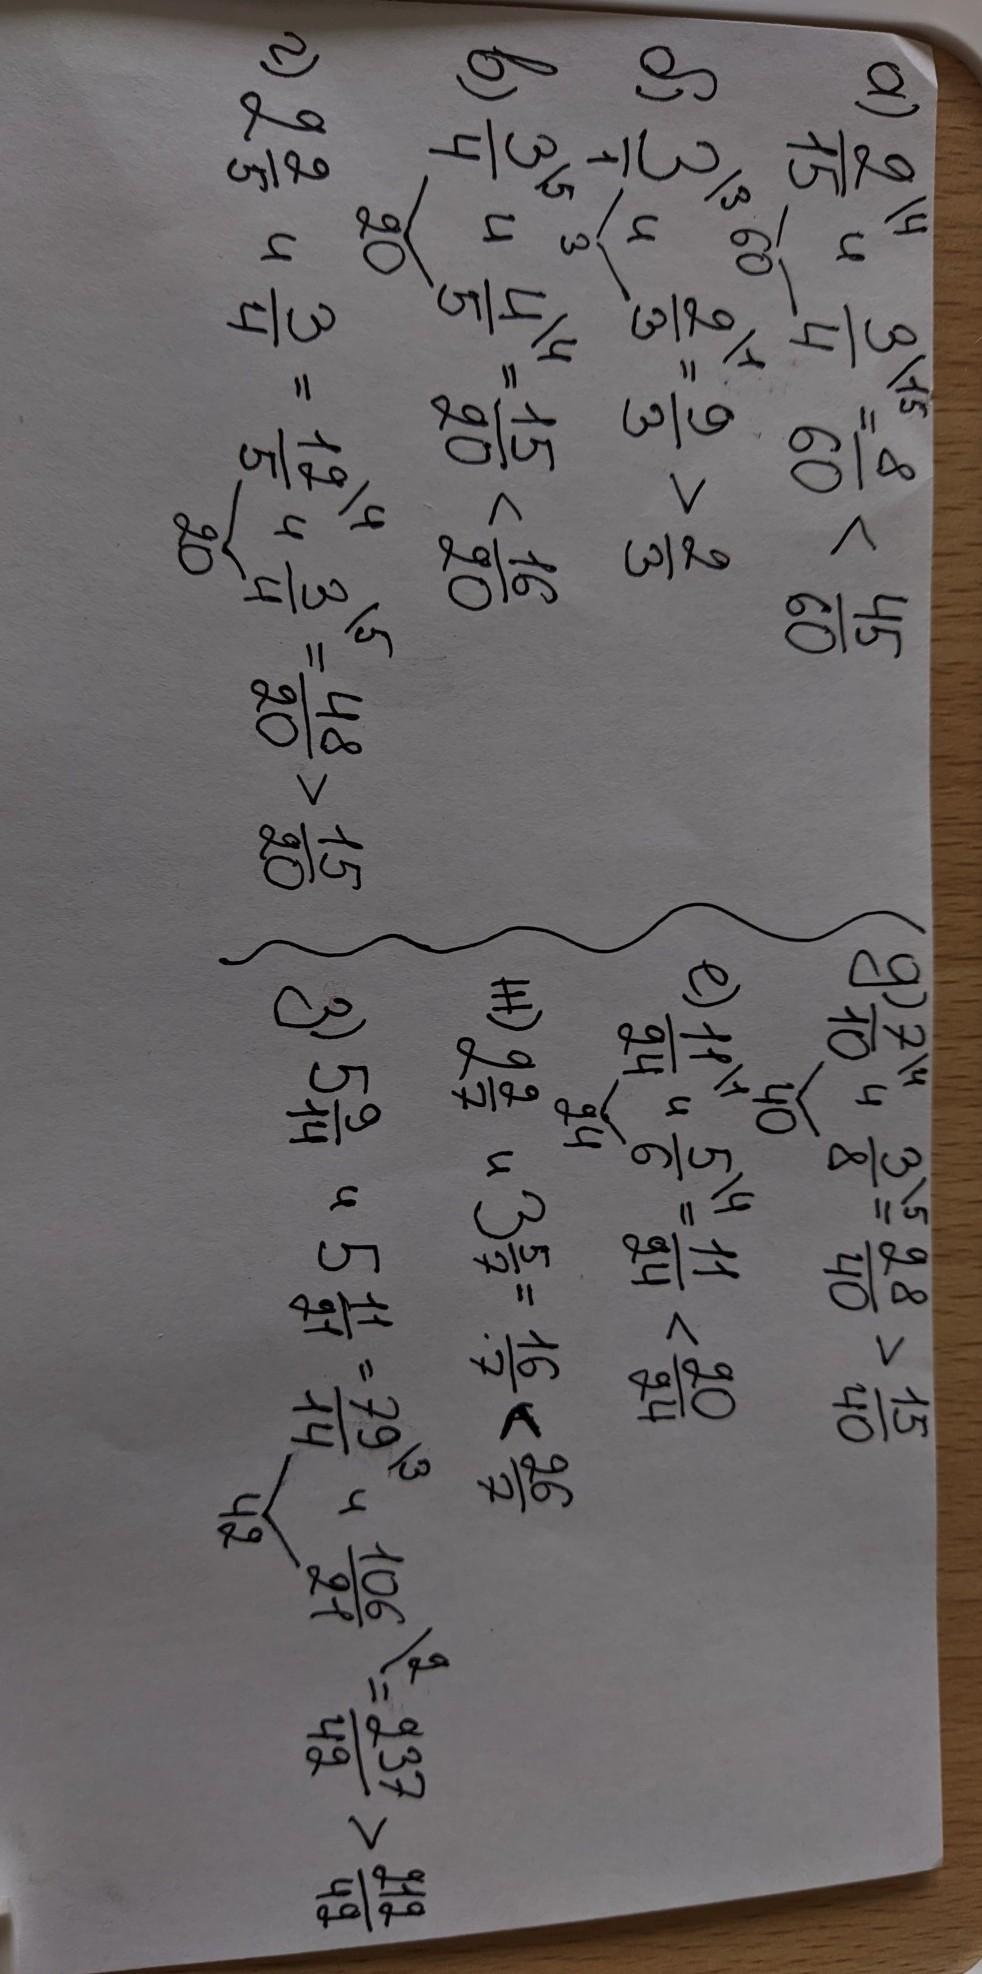 а) 2/15 \4 и 3/4 \15 = 8/60 < 45/60
60
б) 3/1 \3 и 2/3 \1 = 9/3 > 2/3
3
в) 3/4 \5 и 4/5 \4 = 15/20 < 16/20
20
г) 2 2/5 и 3/4 = 12/5 \4 и 3/4 \5 = 48/20 > 15/20
20
д) 7/10 \4 и 3/8 \5 = 28/40 > 15/40
40
е) 11/24 \1 и 5/6 \4 = 11/24 < 20/24
24
ж) 2 2/7 и 3 5/7 = 16/7 < 26/7
з) 5 9/14 и 5 11/21 = 79/14 \3 и 106/21 \2 = 237/42 > 212/42
42